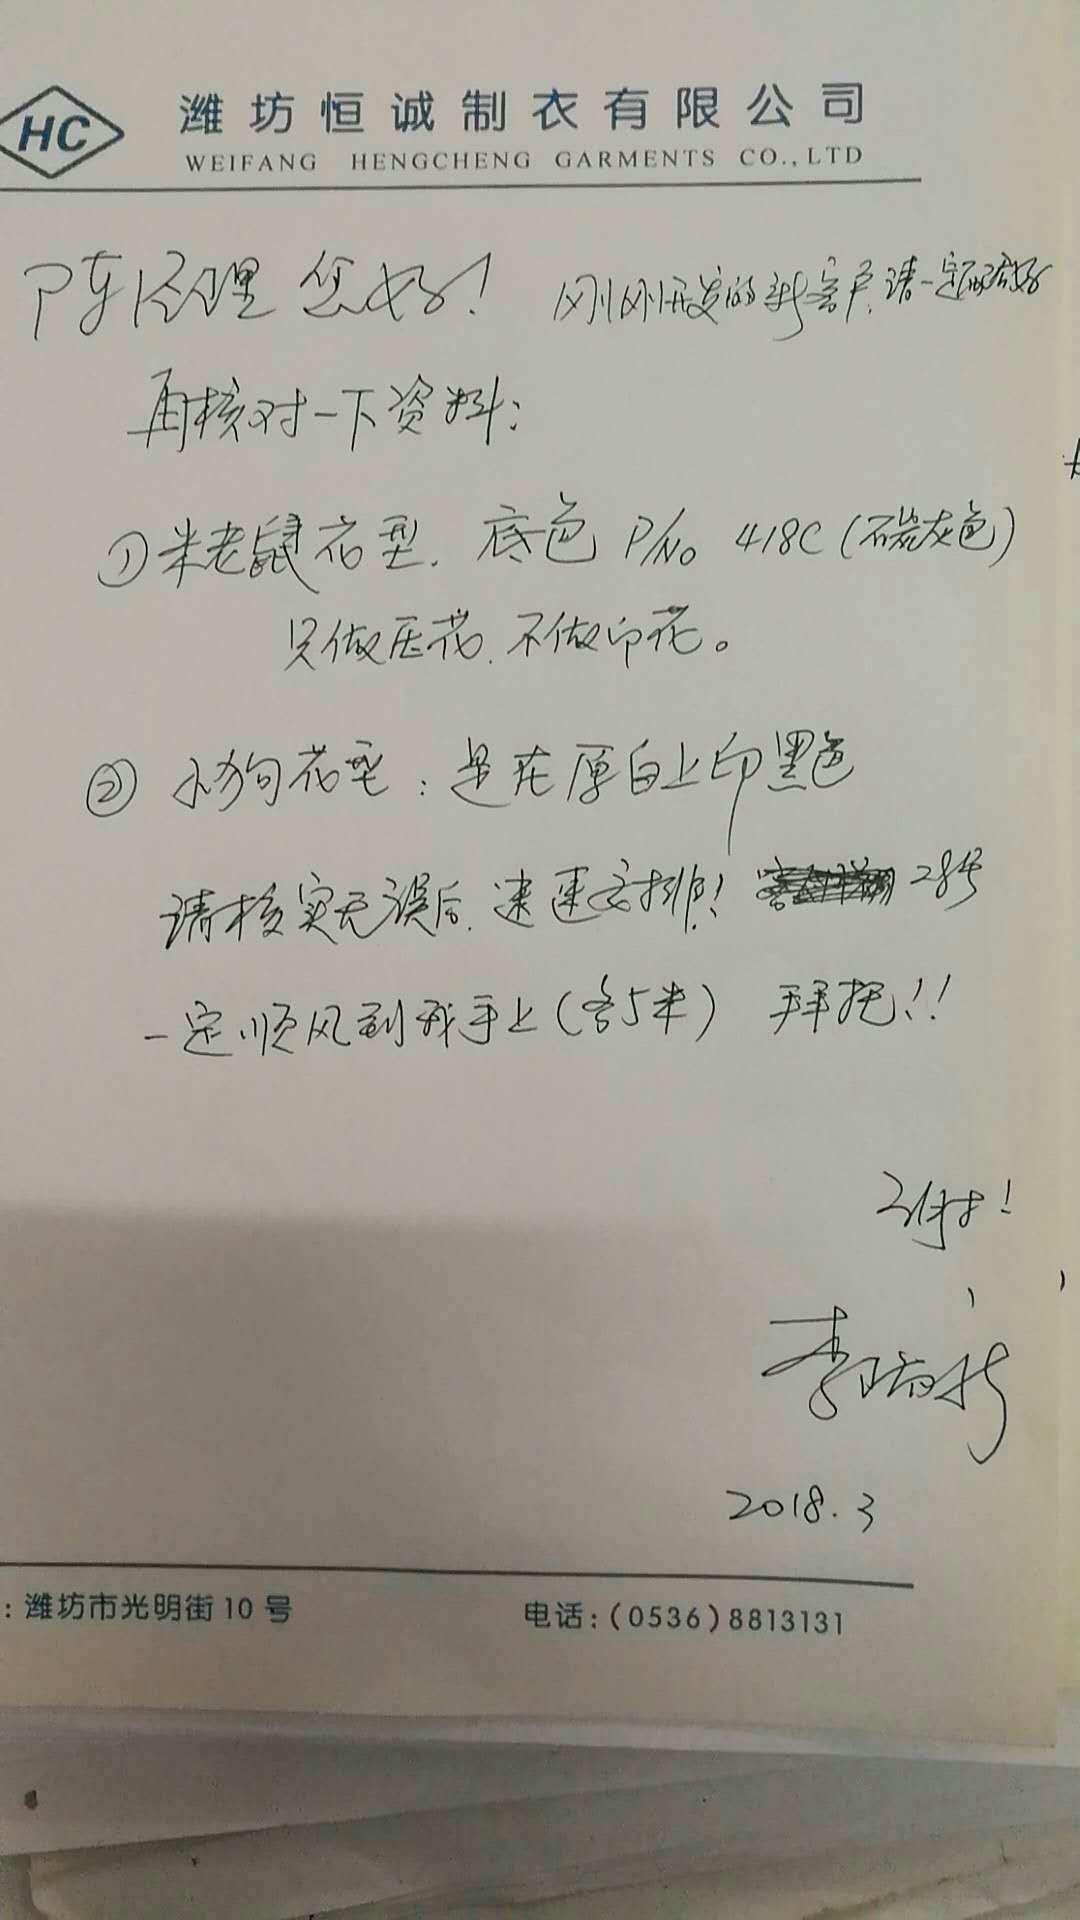 HC
潍坊恒诚制衣有限公司
WEIFANG HENGCHENG GARMENTS CO.,LTD
陈经理您好! 刚刚开发的新客户,请一定配合好
再核对一下资料:
①米老鼠花型. 底色 P/No 418C (石炭灰色)
只做压花.不做印花。
② 小狗花型:是在厚白上印黑色
请核实无误后.速速安排! 28号
一定顺风到我手上(各5米) 拜托!!
谢谢!
李
2018.3
:潍坊市光明街10号
电话:(0536)8813131